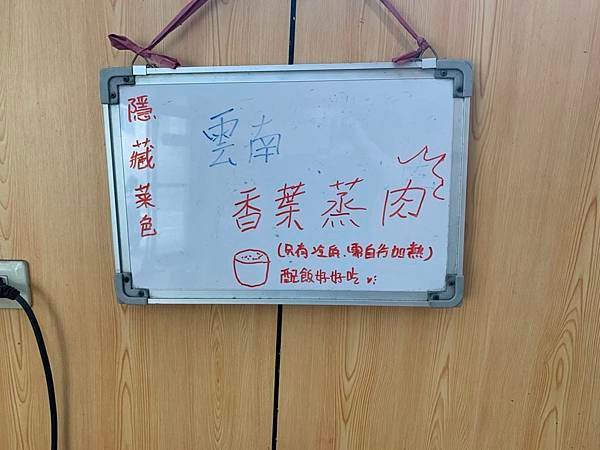 隱藏菜色
雲南
香葉蒸肉
(只有冷凍、需自行加熱)
配飯好好吃